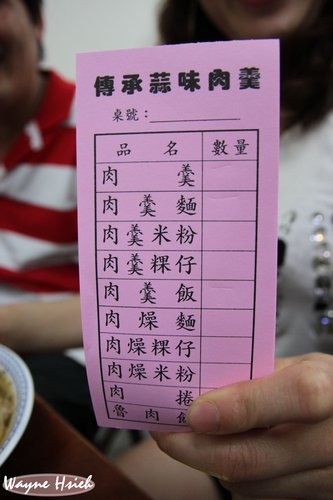 傳承蒜味肉羹
桌號：
品名 數量
肉羹
肉羹麵
肉羹米粉
肉羹粿仔
肉羹飯
肉燥麵
肉燥粿仔
肉燥米粉
肉捲
魯肉飯
Wayne Hsieh